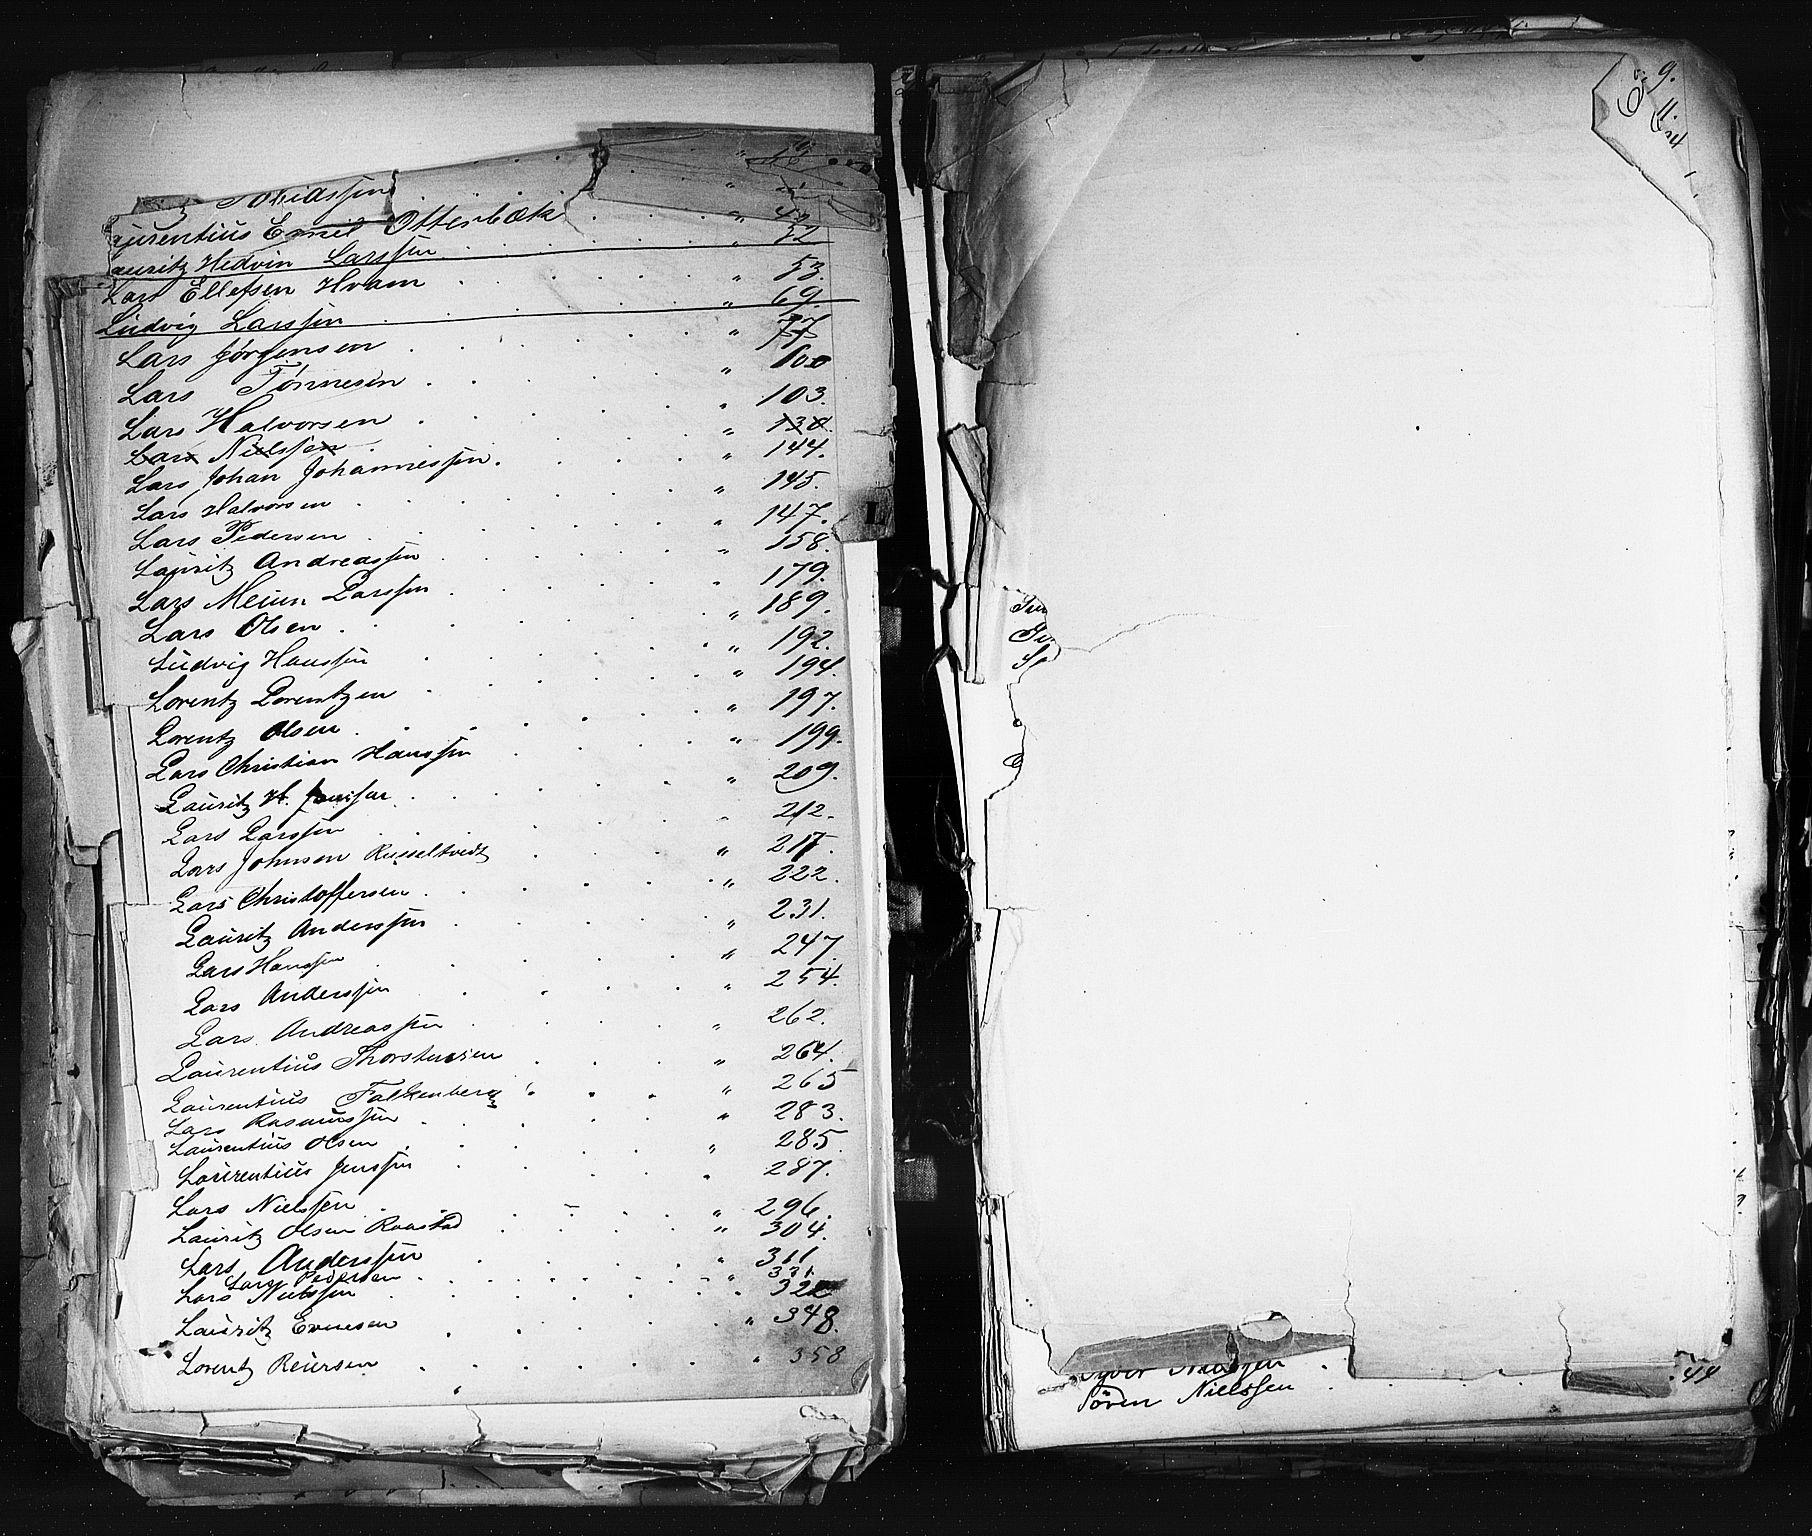 Tobiassen
urentius Emil Otterbæk . . . " 42
auritz Hedvin Larssen . . . " 52
Lars Ellefsen Hvam . . . " 53.
Ludvig Larssen . . . " 69.
Lars Jörgensen . . . " 77
Lars Tönnesen . . . " 100
Lars Halvorsen . . . " 103.
Lars Nielssen . . . " 138.
Lars Johan Johannessen . . . " 144.
Lars Halvorsen . . . " 145.
Lars Pedersen . . . " 147.
Lauritz Andreassen . . . " 158.
Lars Meiun Larssen . . . " 179.
Lars Olsen . . . " 189.
Ludvig Hanssen . . . " 192.
Lorentz Lorentzen . . . " 194.
Lorentz Olsen . . . " 197.
Lars Christian Hanssen . . . " 199.
Lauritz H. . . . " 209.
Lars Larssen . . . " 212.
Lars Johnsen Russeltvedt . . . " 217.
Lars Christoffersen . . . " 222.
Lauritz Anderssen . . . " 231.
Lars Hanssen . . . " 247.
Lars Anderssen . . . " 254.
Lars Andreassen . . . " 262.
Laurentius Thorstensen . . . " 264.
Laurentius Falkenberg . . . " 265
Lars Rasmussen . . . " 283.
Laurentius Olsen . . . " 285.
Laurentius Jenssen . . . " 287.
Lars Nielssen . . . " 296.
Lauritz Olsen Raastad . . . " 304.
Lars Anderssen . . . " 311
Lars Pedersen . . . " 331.
Lars Nielssen . . . " 32
Lauritz Evensen . . . " 348.
Lorentz Reiersen . . . " 358
L
9.
11.
24
44
Sören Nielssen